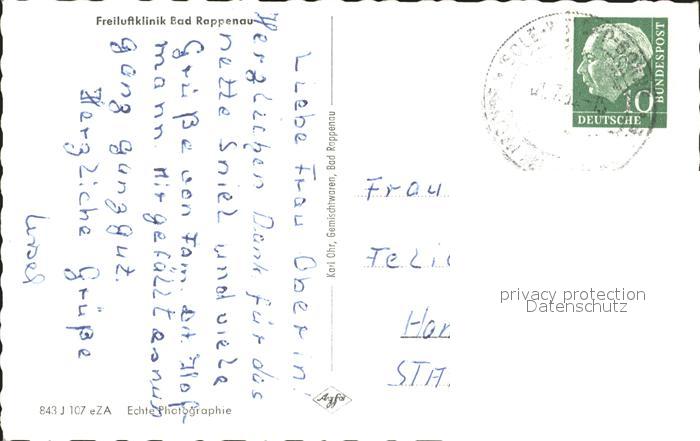 Freiluftklinik Bad Rappenau
Liebe Frau Oberin!
Herzlichen Dank für das
nette Spiel und viele
Grüße von Fam.
mann. Mir gefällt es nun
ganz ganz gut.
Herzliche Grüße
Karl Ohr, Gemischtwaren, Bad Rappenau
Agfa
843 J 107 eZA Echte Photographie
10
DEUTSCHE
BUNDESPOST
Frau
privacy protection
Datenschutz